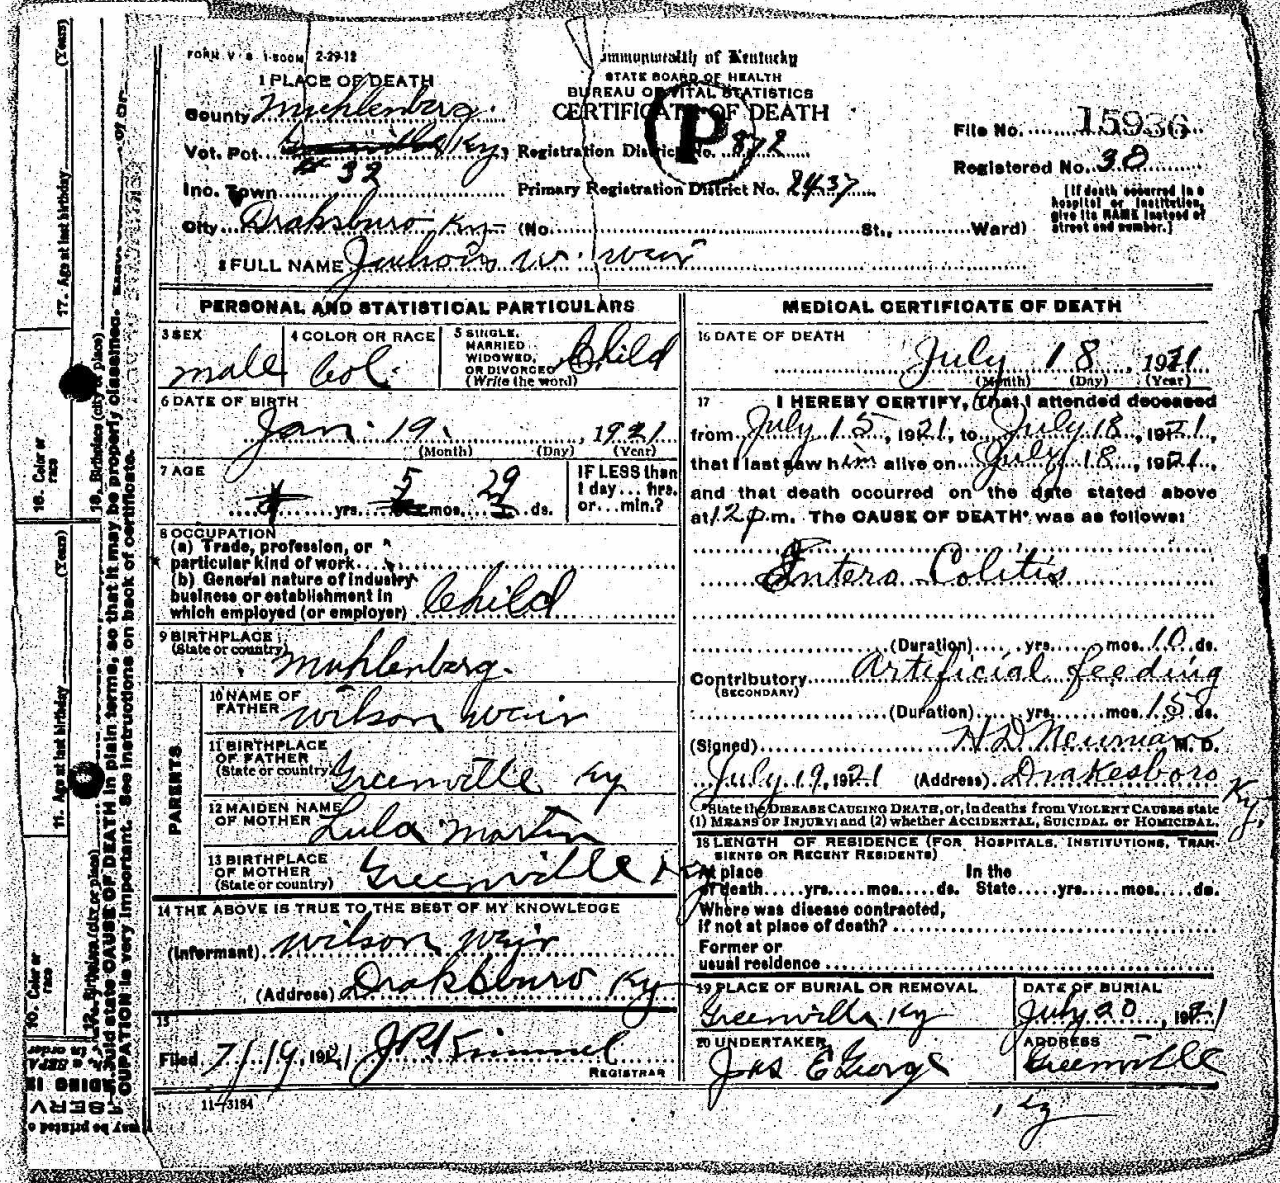 FORM V. S. 1-500M 2-29-12
Commonwealth of Kentucky
STATE BOARD OF HEALTH
BUREAU OF VITAL STATISTICS
CERTIFICATE OF DEATH
P
1 PLACE OF DEATH
County Muhlenberg
Vot. Pct. Greenville Ky
# 32
Inc. Town
City Draksburo Ky
Registration District No. 872
Primary Registration District No. 2437
(No. St., Ward)
File No. 15936
Registered No. 38
[If death occurred in a
hospital or institution,
give its NAME instead of
street and number.]
2 FULL NAME W. Weir
PERSONAL AND STATISTICAL PARTICULARS
3 SEX
male
4 COLOR OR RACE
Col.
5 SINGLE,
MARRIED
WIDOWED,
OR DIVORCED
(Write the word)
Child
6 DATE OF BIRTH
Jan. 19. , 1921
(Month) (Day) (Year)
7 AGE
yrs. 5 mos. 29 ds.
IF LESS than
1 day... hrs.
or... min.?
8 OCCUPATION
(a) Trade, profession, or
particular kind of work
(b) General nature of industry
business or establishment in
which employed (or employer) Child
9 BIRTHPLACE
(State or country)
Muhlenberg.
PARENTS
10 NAME OF
FATHER
Wilson Weir
11 BIRTHPLACE
OF FATHER
(State or country)
Greenville Ky
12 MAIDEN NAME
OF MOTHER
Lula Martin
13 BIRTHPLACE
OF MOTHER
(State or country)
Greenville Ky
14 THE ABOVE IS TRUE TO THE BEST OF MY KNOWLEDGE
(Informant) Wilson Weir
(Address) Draksburo Ky
15
Filed 7/19 1921 J P Kimmel
REGISTRAR
11-3184
MEDICAL CERTIFICATE OF DEATH
16 DATE OF DEATH
July 18, 1921
(Month) (Day) (Year)
17 I HEREBY CERTIFY, That I attended deceased
from July 15, 1921, to July 18, 1921,
that I last saw him alive on July 18, 1921,
and that death occurred on the date stated above
at 12 p.m. The CAUSE OF DEATH* was as follows:
Entero Colitis
(Duration) yrs. mos. 10 ds.
Contributory Artificial feeding
(SECONDARY)
(Duration) yrs. mos. 15 ds.
(Signed) H D Newman M. D.
July 19, 1921 (Address) Drakesboro Ky.
*State the DISEASE CAUSING DEATH, or, in deaths from VIOLENT CAUSES state
(1) MEANS OF INJURY; and (2) whether ACCIDENTAL, SUICIDAL or HOMICIDAL.
18 LENGTH OF RESIDENCE (FOR HOSPITALS, INSTITUTIONS, TRAN-
SIENTS OR RECENT RESIDENTS)
At place In the
of death yrs. mos. ds. State yrs. mos. ds.
Where was disease contracted,
if not at place of death?
Former or
usual residence
19 PLACE OF BURIAL OR REMOVAL
Greenville Ky
DATE OF BURIAL
July 20, 1921
20 UNDERTAKER
Jas E George
ADDRESS
Greenville
Ky
17. Age at last birthday (Years)
16. Color or
race
18. Birthplace (city or place)
11. Age at last birthday (Years)
10. Color or
race
12. Birthplace (city or place)
should state CAUSE OF DEATH in plain terms, so that it may be properly classified.
OCCUPATION is very important. See instructions on back of certificate.